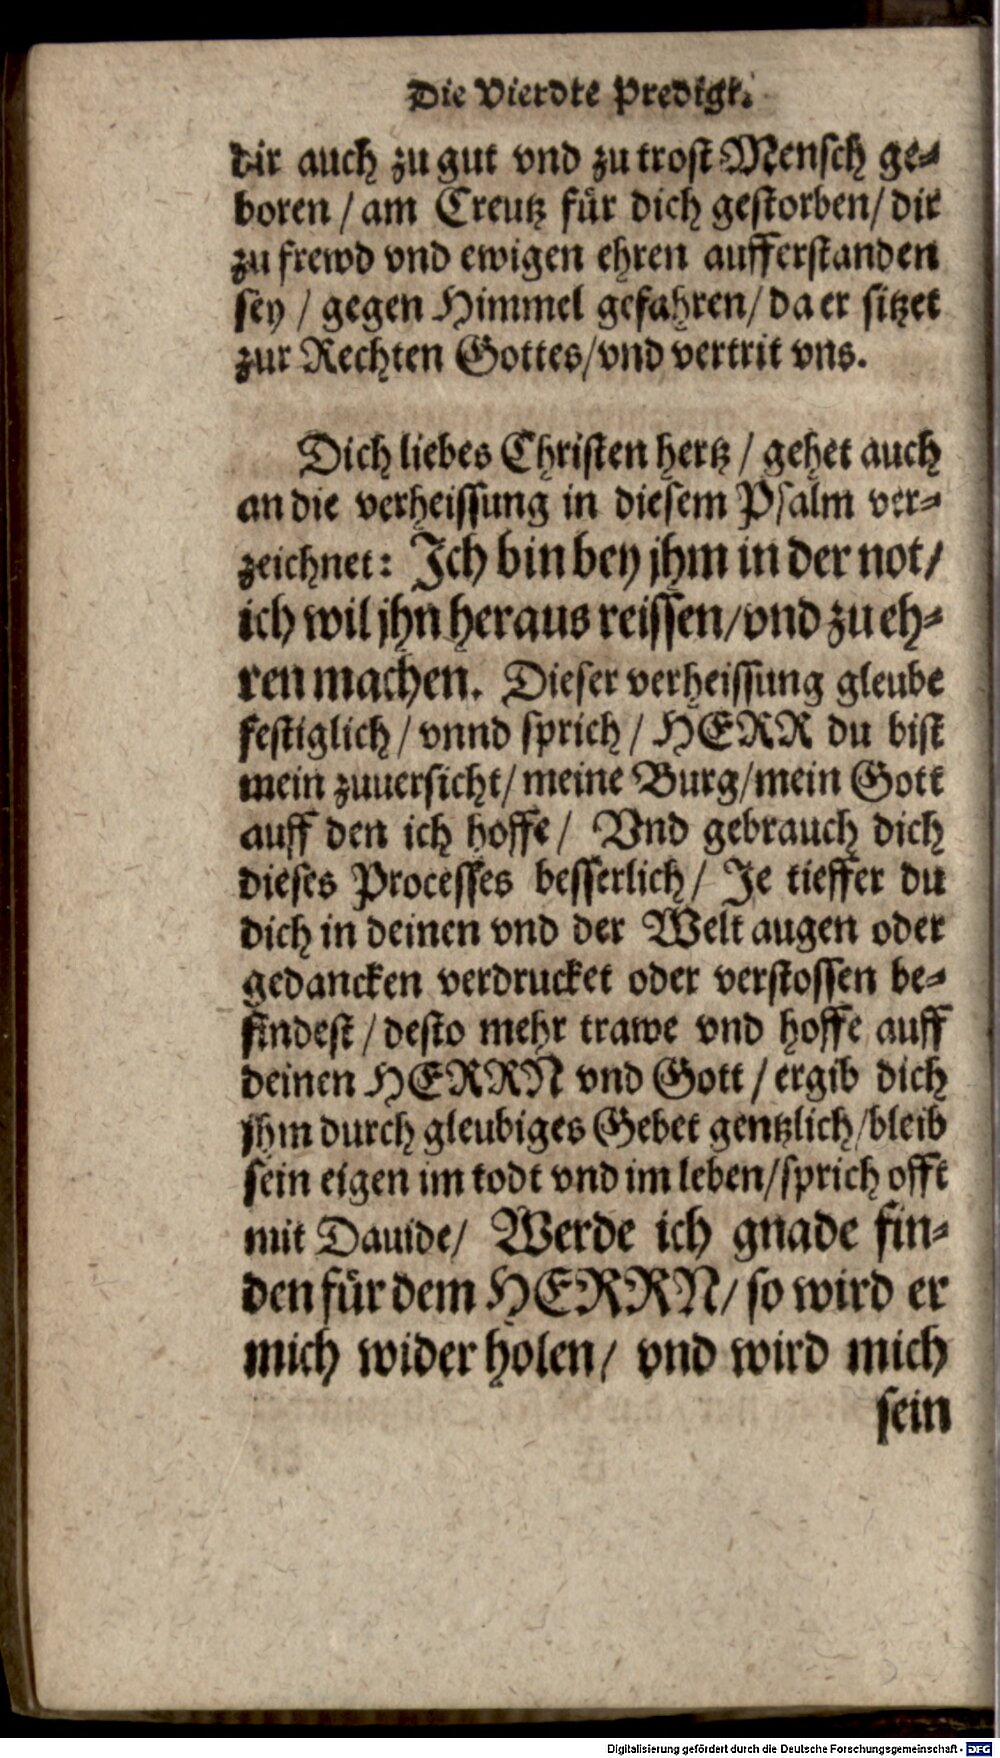 Die Vierdte Predigt.
dir auch zu gut vnd zu trost Mensch ge-
boren / am Creutz für dich gestorben / dir
zu frewd vnd ewigen ehren aufferstanden
sey / gegen Himmel gefahren / da er sitzet
zur Rechten Gottes / vnd vertrit vns.
Dich liebes Christen hertz / gehet auch
an die verheissung in diesem Psalm ver-
zeichnet: Ich bin bey jhm in der not /
ich wil jhn heraus reissen / vnd zu eh-
ren machen. Dieser verheissung gleube
festiglich / vnnd sprich / HERR du bist
mein zuuersicht / meine Burg / mein Gott
auff den ich hoffe / Vnd gebrauch dich
dieses Processes besserlich / Je tieffer du
dich in deinen vnd der Welt augen oder
gedancken verdrucket oder verstossen be-
findest / desto mehr trawe vnd hoffe auff
deinen HERRN vnd Gott / ergib dich
jhm durch gleubiges Gebet gentzlich / bleib
sein eigen im todt vnd im leben / sprich offt
mit Dauide / Werde ich gnade fin-
den für dem HERRN / so wird er
mich wider holen / vnd wird mich
sein
Digitalisierung gefördert durch die Deutsche Forschungsgemeinschaft - DFG